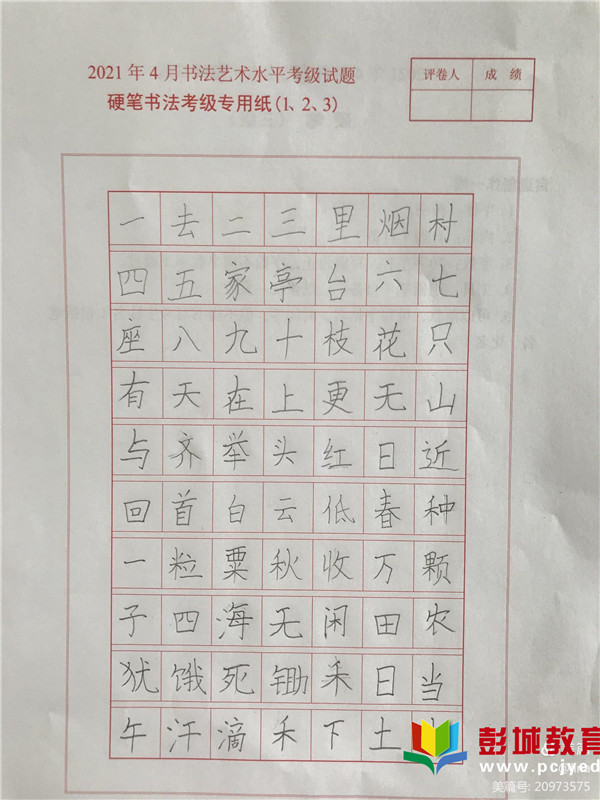 2021年4月书法艺术水平考级试题
硬笔书法考级专用纸(1、2、3)
评卷人 成绩
一去二三里烟村
四五家亭台六七
座八九十枝花只
有天在上更无山
与齐举头红日近
回首白云低春种
一粒粟秋收万颗
子四海无闲田农
犹饿死锄禾日当
午汗滴禾下土
彭城教育
www.pcjyed
美篇号: 20973575